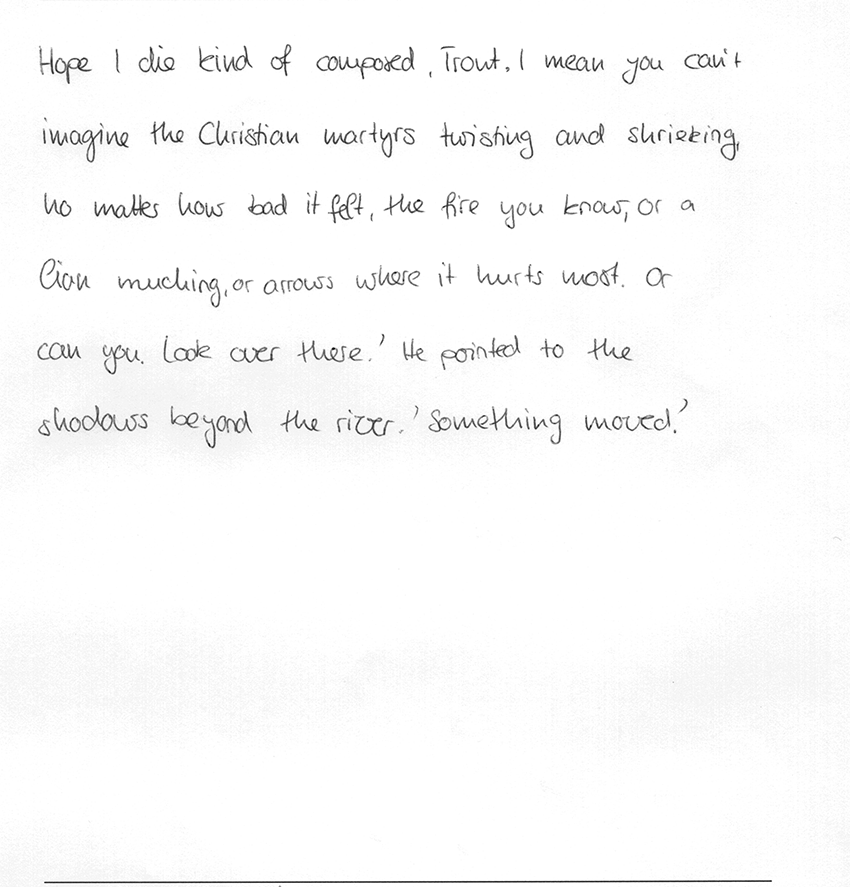 Hope I die kind of composed, Trout, I mean you can't
imagine the Christian martyrs twisting and shrieking,
no matter how bad it felt, the fire you know, or a
lion muching, or arrows where it hurts most. Or
can you. Look over there.' He pointed to the
shadows beyond the river. 'Something moved.'